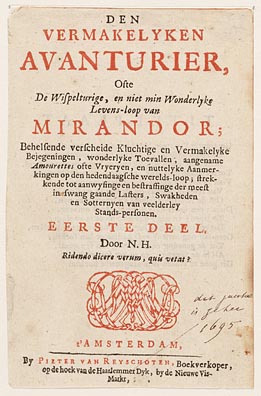 DEN
VERMAKELYKEN
AVANTURIER,
Ofte
De Wispelturige, en niet min Wonderlyke
Levens-loop van
MIRANDOR;
Behelsende verscheide Kluchtige en Vermakelyke
Bejegeningen, wonderlyke Toevallen, aangename
Amourettes ofte Vryeryen, en nuttelyke Aanmer-
kingen op den hedendaagsche werelds-loop; strek-
kende tot aanwysinge en bestraffinge der meest
in swang gaande Lasters, Swakheden
en Sotternyen van veelderley
Stands-personen.
EERSTE DEEL.
Door N. H.
Ridendo dicere verum, quis vetat?
dit
is
1695
t'AMSTERDAM,
By PIETER VAN REYSCHOTEN, Boekverkoper,
op de hoek van de Haarlemmer Dyk, by de Nieuwe Vis-
Markt,